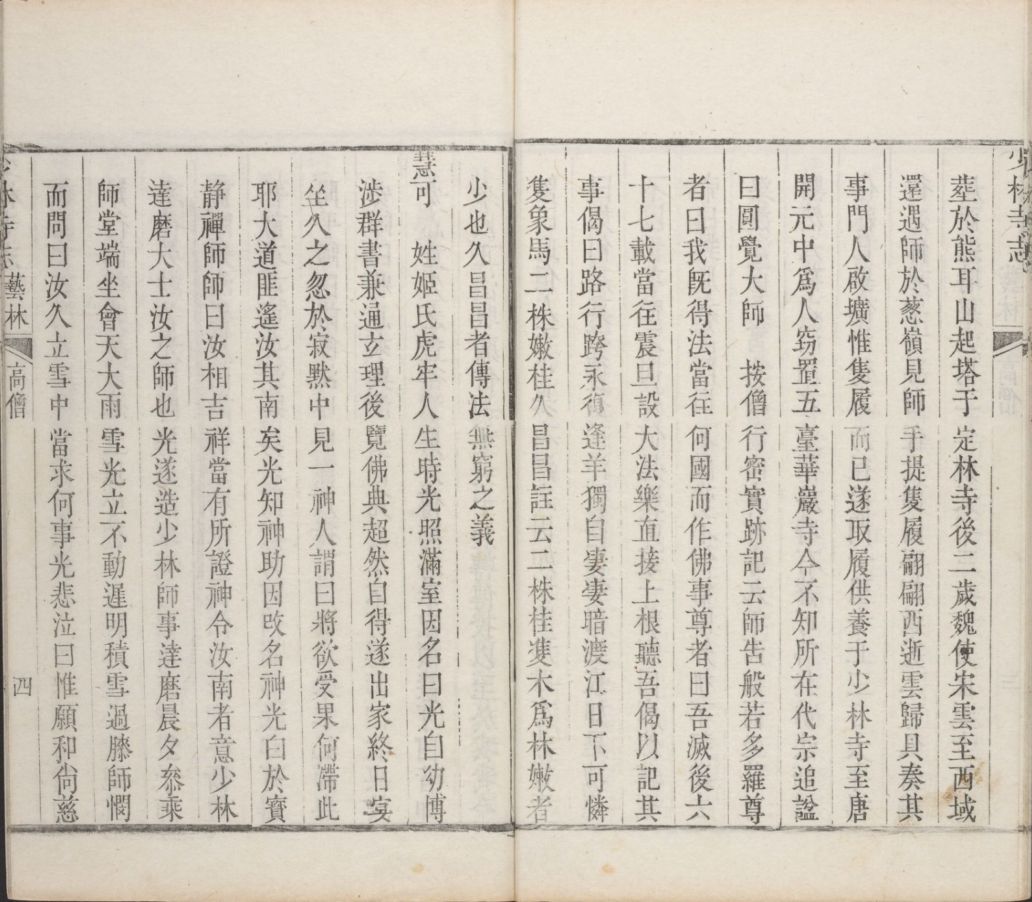 少林寺志
塟於熊耳山起塔于定林寺後二歲魏使宋雲至西域
還遇師於葱嶺見師手提隻履翩翩西逝雲歸具奏其
事門人啟壙惟隻履而已遂取履供養于少林寺至唐
開元中爲人窃置五臺華巖寺今不知所在代宗追諡
曰圓覺大師　按僧行密實跡記云師告般若多羅尊
者曰我旣得法當往何國而作佛事尊者曰吾滅後六
十七載當往震旦設大法樂直接上根聽吾偈以記其
事偈曰路行跨水復逢羊獨自凄凄暗渡江日下可憐
隻象馬二株嫩桂久昌昌註云二株桂隻木爲林嫩者
少也久昌昌者傳法無窮之義
慧可　姓姬氏虎牢人生時光照滿室因名曰光自幼博
涉群書兼通玄理後覽佛典超然自得遂出家終日宴
坐久之忽於寂黙中見一神人謂曰將欲受果何滯此
耶大道匪遙汝其南矣光知神助因改名神光白於寶
静禪師師曰汝相吉祥當有所證神令汝南者意少林
達磨大士汝之師也光遂造少林師事達磨晨夕叅乘
師堂端坐會天大雨雪光立不動遲明積雪過膝師憫
而問曰汝久立雪中當求何事光悲泣曰惟願和尙慈
少林寺志　藝林　高僧　四